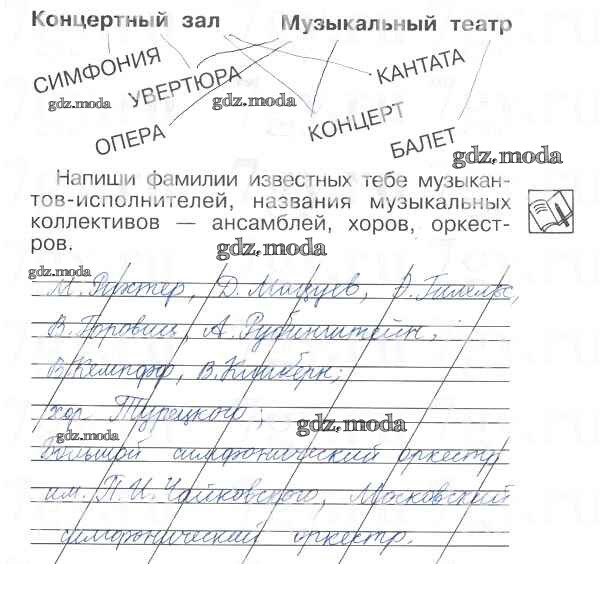 Концертный зал Музыкальный театр
СИМФОНИЯ
УВЕРТЮРА
КАНТАТА
gdz.moda
gdz.moda
ОПЕРА
КОНЦЕРТ
БАЛЕТ
gdz.moda
Напиши фамилии известных тебе музыкан-
тов-исполнителей, названия музыкальных
коллективов — ансамблей, хоров, оркест-
ров.
gdz.moda
gdz.moda
Рихтер, Д. Мацуев, Э. Гилельс,
В. Горовиц, А. Рубинштейн,
В. Кемпфф, В. Клиберн;
хор Турецкого;
gdz.moda
gdz.moda
Большой симфонический оркестр
им. П. И. Чайковского, Московский
симфонический оркестр.